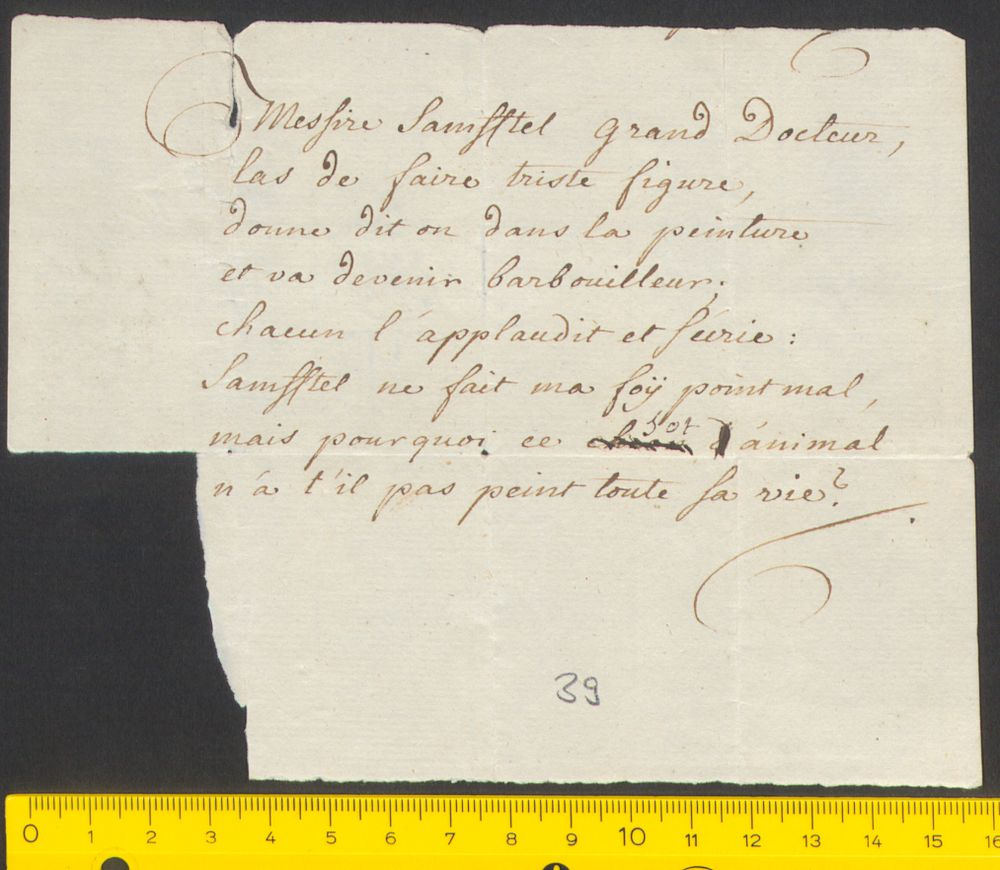 Messire Samsstel grand Docteur,
las de faire triste figure,
donne dit on dans la peinture
et va devenir barbouilleur;
chacun l'applaudit et s'écrie:
Samsstel ne fait ma foÿ point mal,
mais pourquoi ce sot d'animal
n'a t'il pas peint toute sa vie?
39
0 1 2 3 4 5 6 7 8 9 10 11 12 13 14 15 16